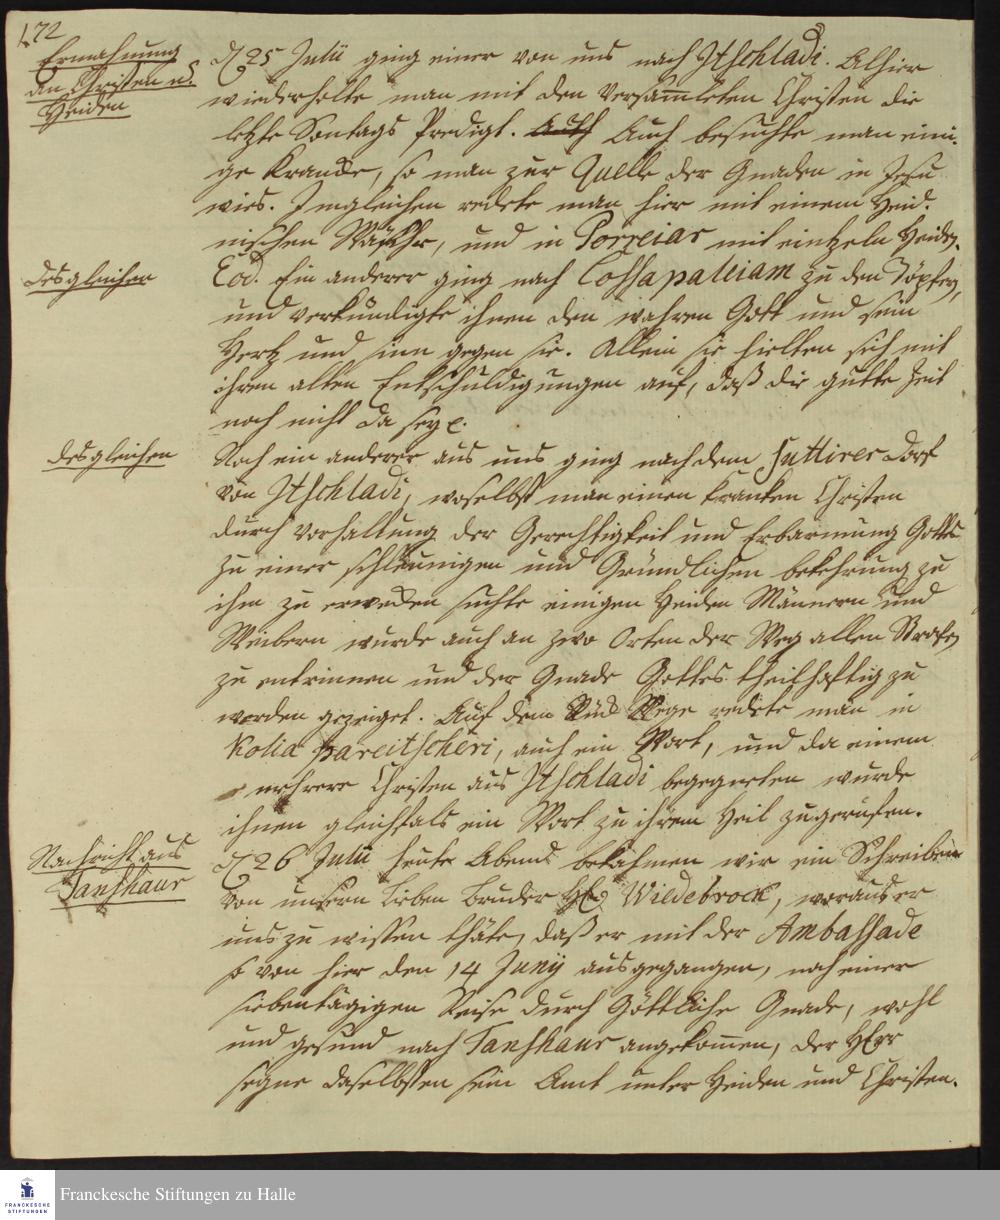 172
Ermahnung
an Christen u.
Heiden
d 25 Julii ging einer von uns nach Itschladi. Alhier
wiederholte man mit den versam̅leten Christen die
letzte Sontags Predigt. Auch besuchte man eini-
ge Krancke, so man zur Quelle der Gnaden in Jesu
wies. Imgleichen redete man hier mit einem Heid-
nischen Wächter, und in Porreiar mit eintzeln Heiden.
desgleichen
Eod. Ein anderer ging nach Cossapaleiam zu den Töpfern,
und verkündigte ihnen den wahren Gott und sein
Hertz und sinn gegen sie. Allein sie hielten sich mit
ihren alten Entschuldigungen auf, daß die gutte Zeit
noch nicht da sey.
desgleichen
Noch ein anderer aus uns ging nach dem Suttirer dorf
von Itschladi, woselbst man einen krancken Christen
durch vorhaltung der Gerechtigkeit und Erbarmung Gottes
zu einer schleunigen und Gründlichen bekehrung zu
ihm zu erwecken suchte einigen Heiden Männern und
Weibern wurde auch an zwo Orten der Weg allen Strafen
zu entrinnen und der Gnade Gottes theilhaftig zu
werden gezeiget. Auf dem Rück Wege redete man in
Kolia pareitscheri, auch ein Wort, und da einem
mehrere Christen aus Itschladi begegneten wurde
ihnen gleichfals ein Wort zu ihrem Heil zugerufen.
Nachricht aus
Tanshaur
d 26 Julii heute Abend bekahmen wir ein Schreiben
von unsern lieben Bruder H. Wiedebrock, woraus er
uns zu wissen thäte, daß er mit der Ambassade
so von hier den 14 Junij ausgegangen, nach einer
siebentägigen Reise durch Göttliche Gnade, wohl
und gesund nach Tanshaur angekom̅en, der HErr
segne daselbsten sein Amt unter Heiden und Christen.
FRANCKESCHE
STIFTUNGEN
Franckesche Stiftungen zu Halle